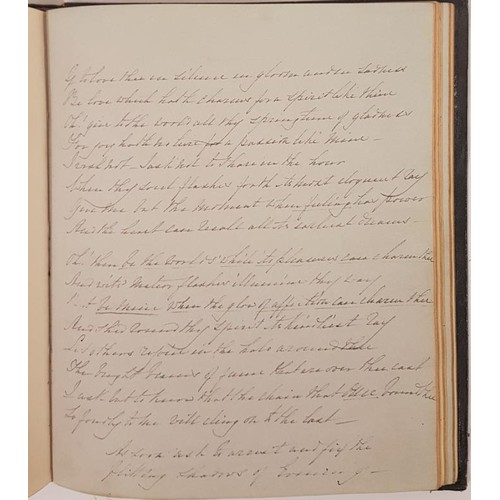 to love thee in silence in gloom and in sadness
Be love which hath charms for a spirit like thine
Oh! give to the world all thy springtime of gladness
For joy hath no lure for a passion like mine -
I ask not - I ask not to share in the hour
When thy soul flashes forth its most eloquent lay
Give me but the moment when feeling has power
And the heart can recall all its earliest dreams -
Oh! then be the World's while its pleasures can charm thee
And wit's meteor flashes illumine thy way
be mine when the glow of affection can charm thee
And shed round thy spirit its kindliest ray
Let others rejoice in the halo around thee
The bright beams of fame that are over thee cast
I ask but to know that the chain that bound thee
So fondly to me will cling on to the last -
As soon ask to arrest and fix the
flitting shadows of Evening -